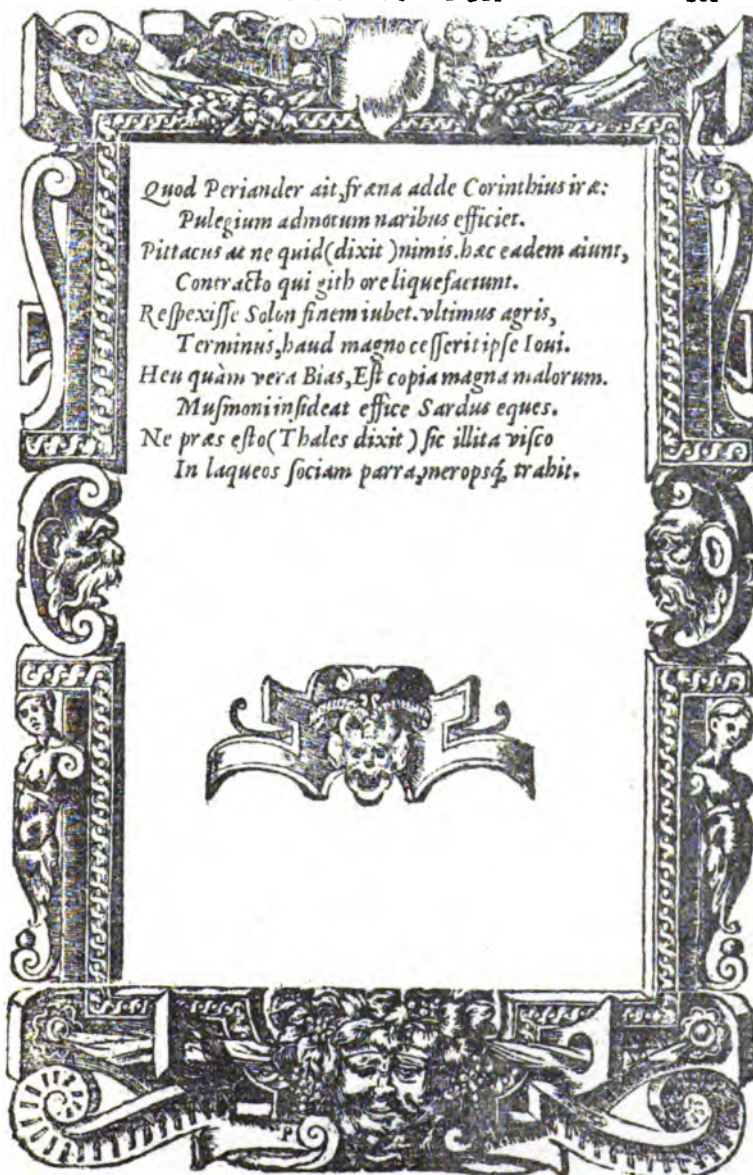 Quod Periander ait, fræna adde Corinthius iræ:
Pulegium admotum naribus efficiet.
Pittacus at ne quid (dixit) nimis. hæc eadem aiunt,
Contracto qui gith ore liquefaciunt.
Respexisse Solon finem iubet. vltimus agris,
Terminus, haud magno cesserit ipse Ioui.
Heu quàm vera Bias, Est copia magna malorum.
Musmoni insideat effice Sardus eques.
Ne præs esto (Thales dixit) sic illita visco
In laqueos sociam parra, meropsq́, trahit.
P